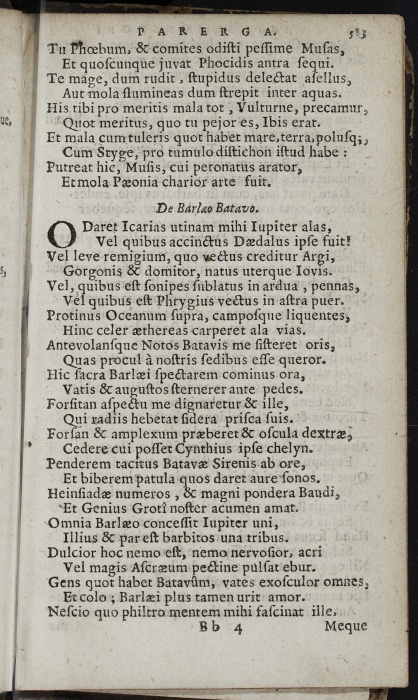 PARERGA. 583
Tu Phœbum, & comites odisti pessime Musas,
Et quoscunque juvat Phocidis antra sequi.
Te mage, dum rudit, stupidus delectat asellus,
Aut mola flumineas dum strepit inter aquas.
His tibi pro meritis mala tot, Vulturne, precamur,
Quot meritus, quo tu pejor es, Ibis erat.
Et mala cum tuleris quot habet mare, terra, polusq;,
Cum Styge, pro tumulo distichon istud habe:
Putreat hic, Musis, cui peronatus arator,
Et mola Pæonia charior arte fuit.
De Barlæo Batavo.
O Daret Icarias utinam mihi Iupiter alas,
Vel quibus accinctus Dædalus ipse fuit!
Vel leve remigium, quo vectus creditur Argi,
Gorgonis & domitor, natus uterque Iovis.
Vel, quibus est sonipes sublatus in ardua, pennas,
Vel quibus est Phrygius vectus in astra puer.
Protinus Oceanum supra, camposque liquentes,
Hinc celer æthereas carperet ala vias.
Antevolansque Notos Batavis me sisteret oris,
Quas procul à nostris sedibus esse queror.
Hic sacra Barlæi spectarem cominus ora,
Vatis & augustos sternerer ante pedes.
Forsitan aspectu me dignaretur & ille,
Qui radiis hebetat sidera prisca suis.
Forsan & amplexum præberet & oscula dextræ,
Cedere cui posset Cynthius ipse chelyn.
Penderem tacitus Batavæ Sirenis ab ore,
Et biberem patula quos daret aure sonos.
Heinsiadæ numeros, & magni pondera Baudi,
Et Genius Grotî noster acumen amat.
Omnia Barlæo concessit Iupiter uni,
Illius & par est barbitos una tribus.
Dulcior hoc nemo est, nemo nervosior, acri
Vel magis Ascræum pectine pulsat ebur.
Gens quot habet Batavûm, vates exosculor omnes,
Et colo; Barlæi plus tamen urit amor.
Nescio quo philtro mentem mihi fascinat ille,
Bb 4 Meque